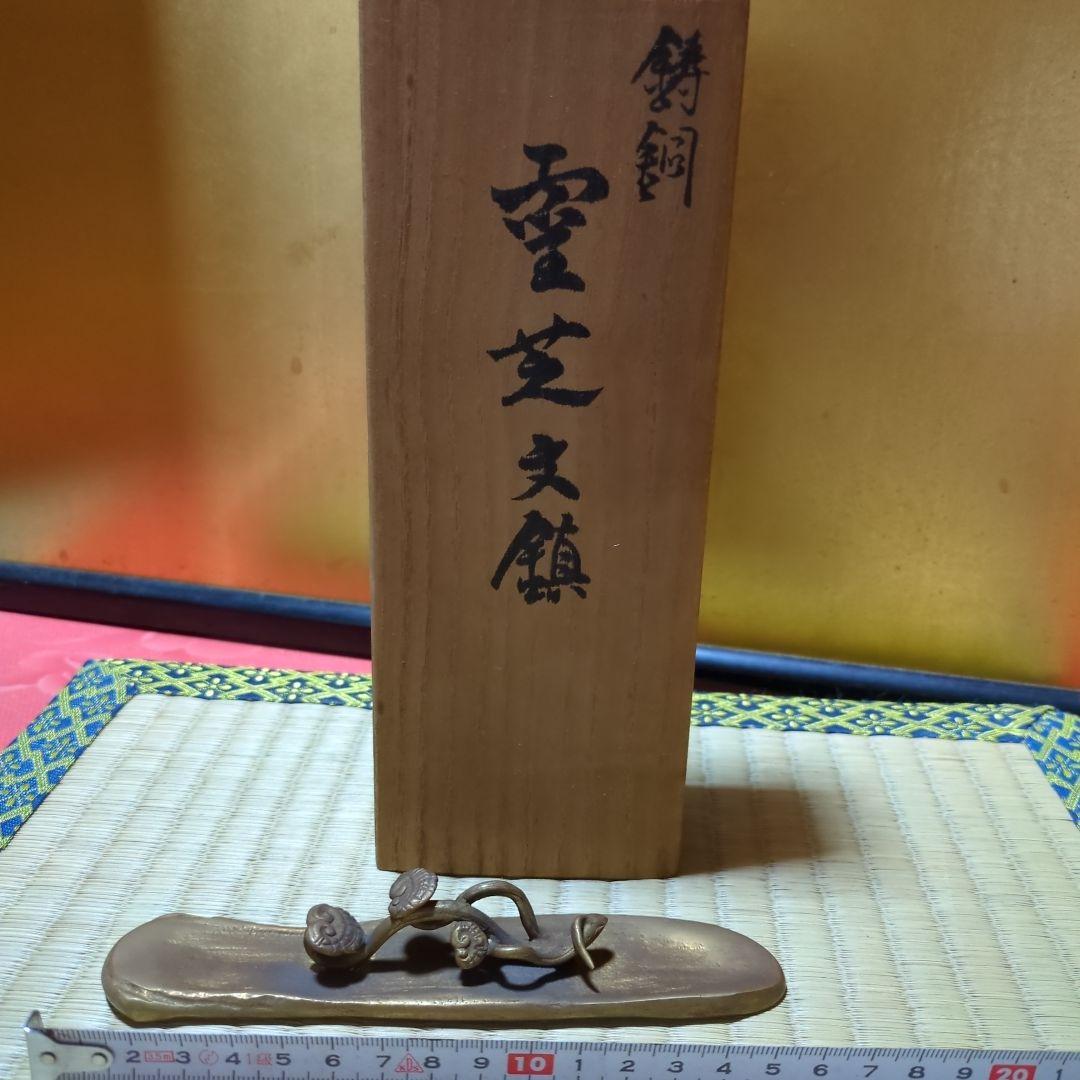 鑄銅
霊芝文鎮
2 3.5m 3 4 1級 5 6 7 8 9 10 1 2 3 4 5 6 7 8 9 20 1